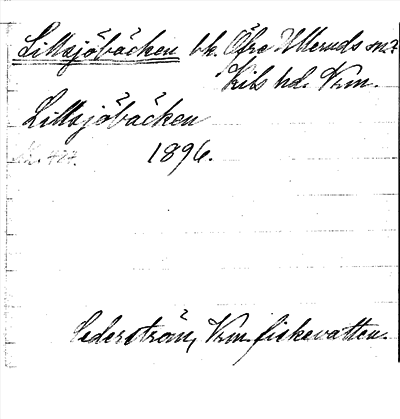 Lillsjöbäcken bk. Öfre Ulleruds sn.
Kils hd. Vrm.
Lillsjöbäcken
1896.
Cederström, Vrm. fiskevatten.